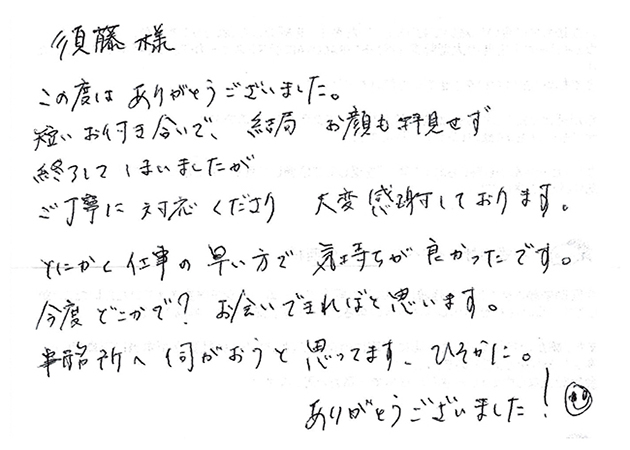 須藤様
この度は ありがとうございました。
短い お付き合いで、結局 お顔も拝見せず
終了して しまいましたが
ご丁寧に 対応 くださり 大変 感謝しております。
とにかく 仕事の 早い方で 気持ちが 良かったです。
今度 どこかで? お会いできればと 思います。
事務所へ 伺がおうと 思ってます、ひそかに。
ありがとうございました!